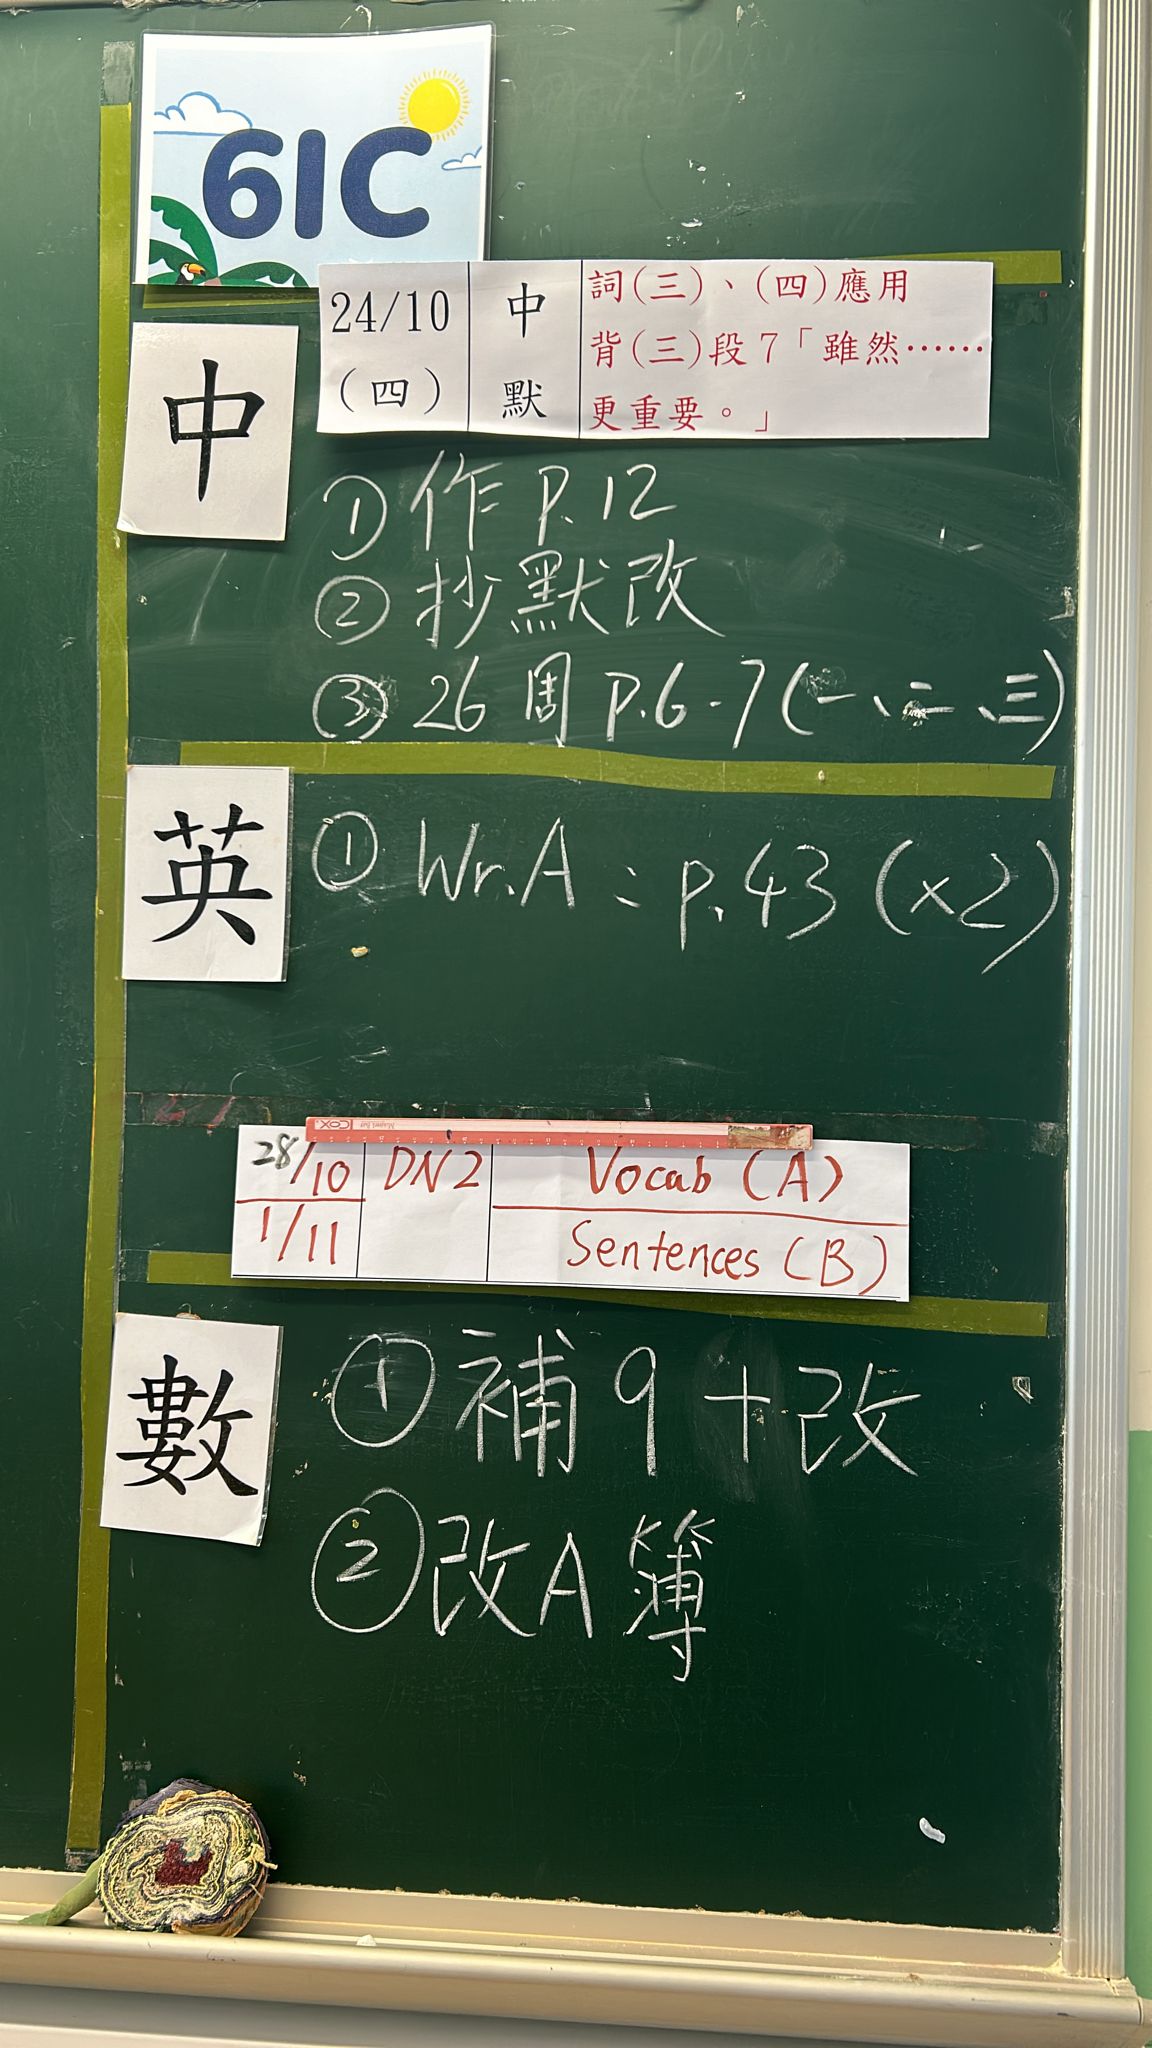 6IC
中
24/10
(四)
中
默
詞(三)、(四)應用
背(三)段7「雖然……
更重要。」
① 作 P.12
② 抄默改
③ 26周 P.6-7(一、二、三)
英
① Wr.A : p.43 (x2)
COX
28/10
1/11
DN2
Vocab (A)
Sentences (B)
數
① 補9+改
② 改A簿